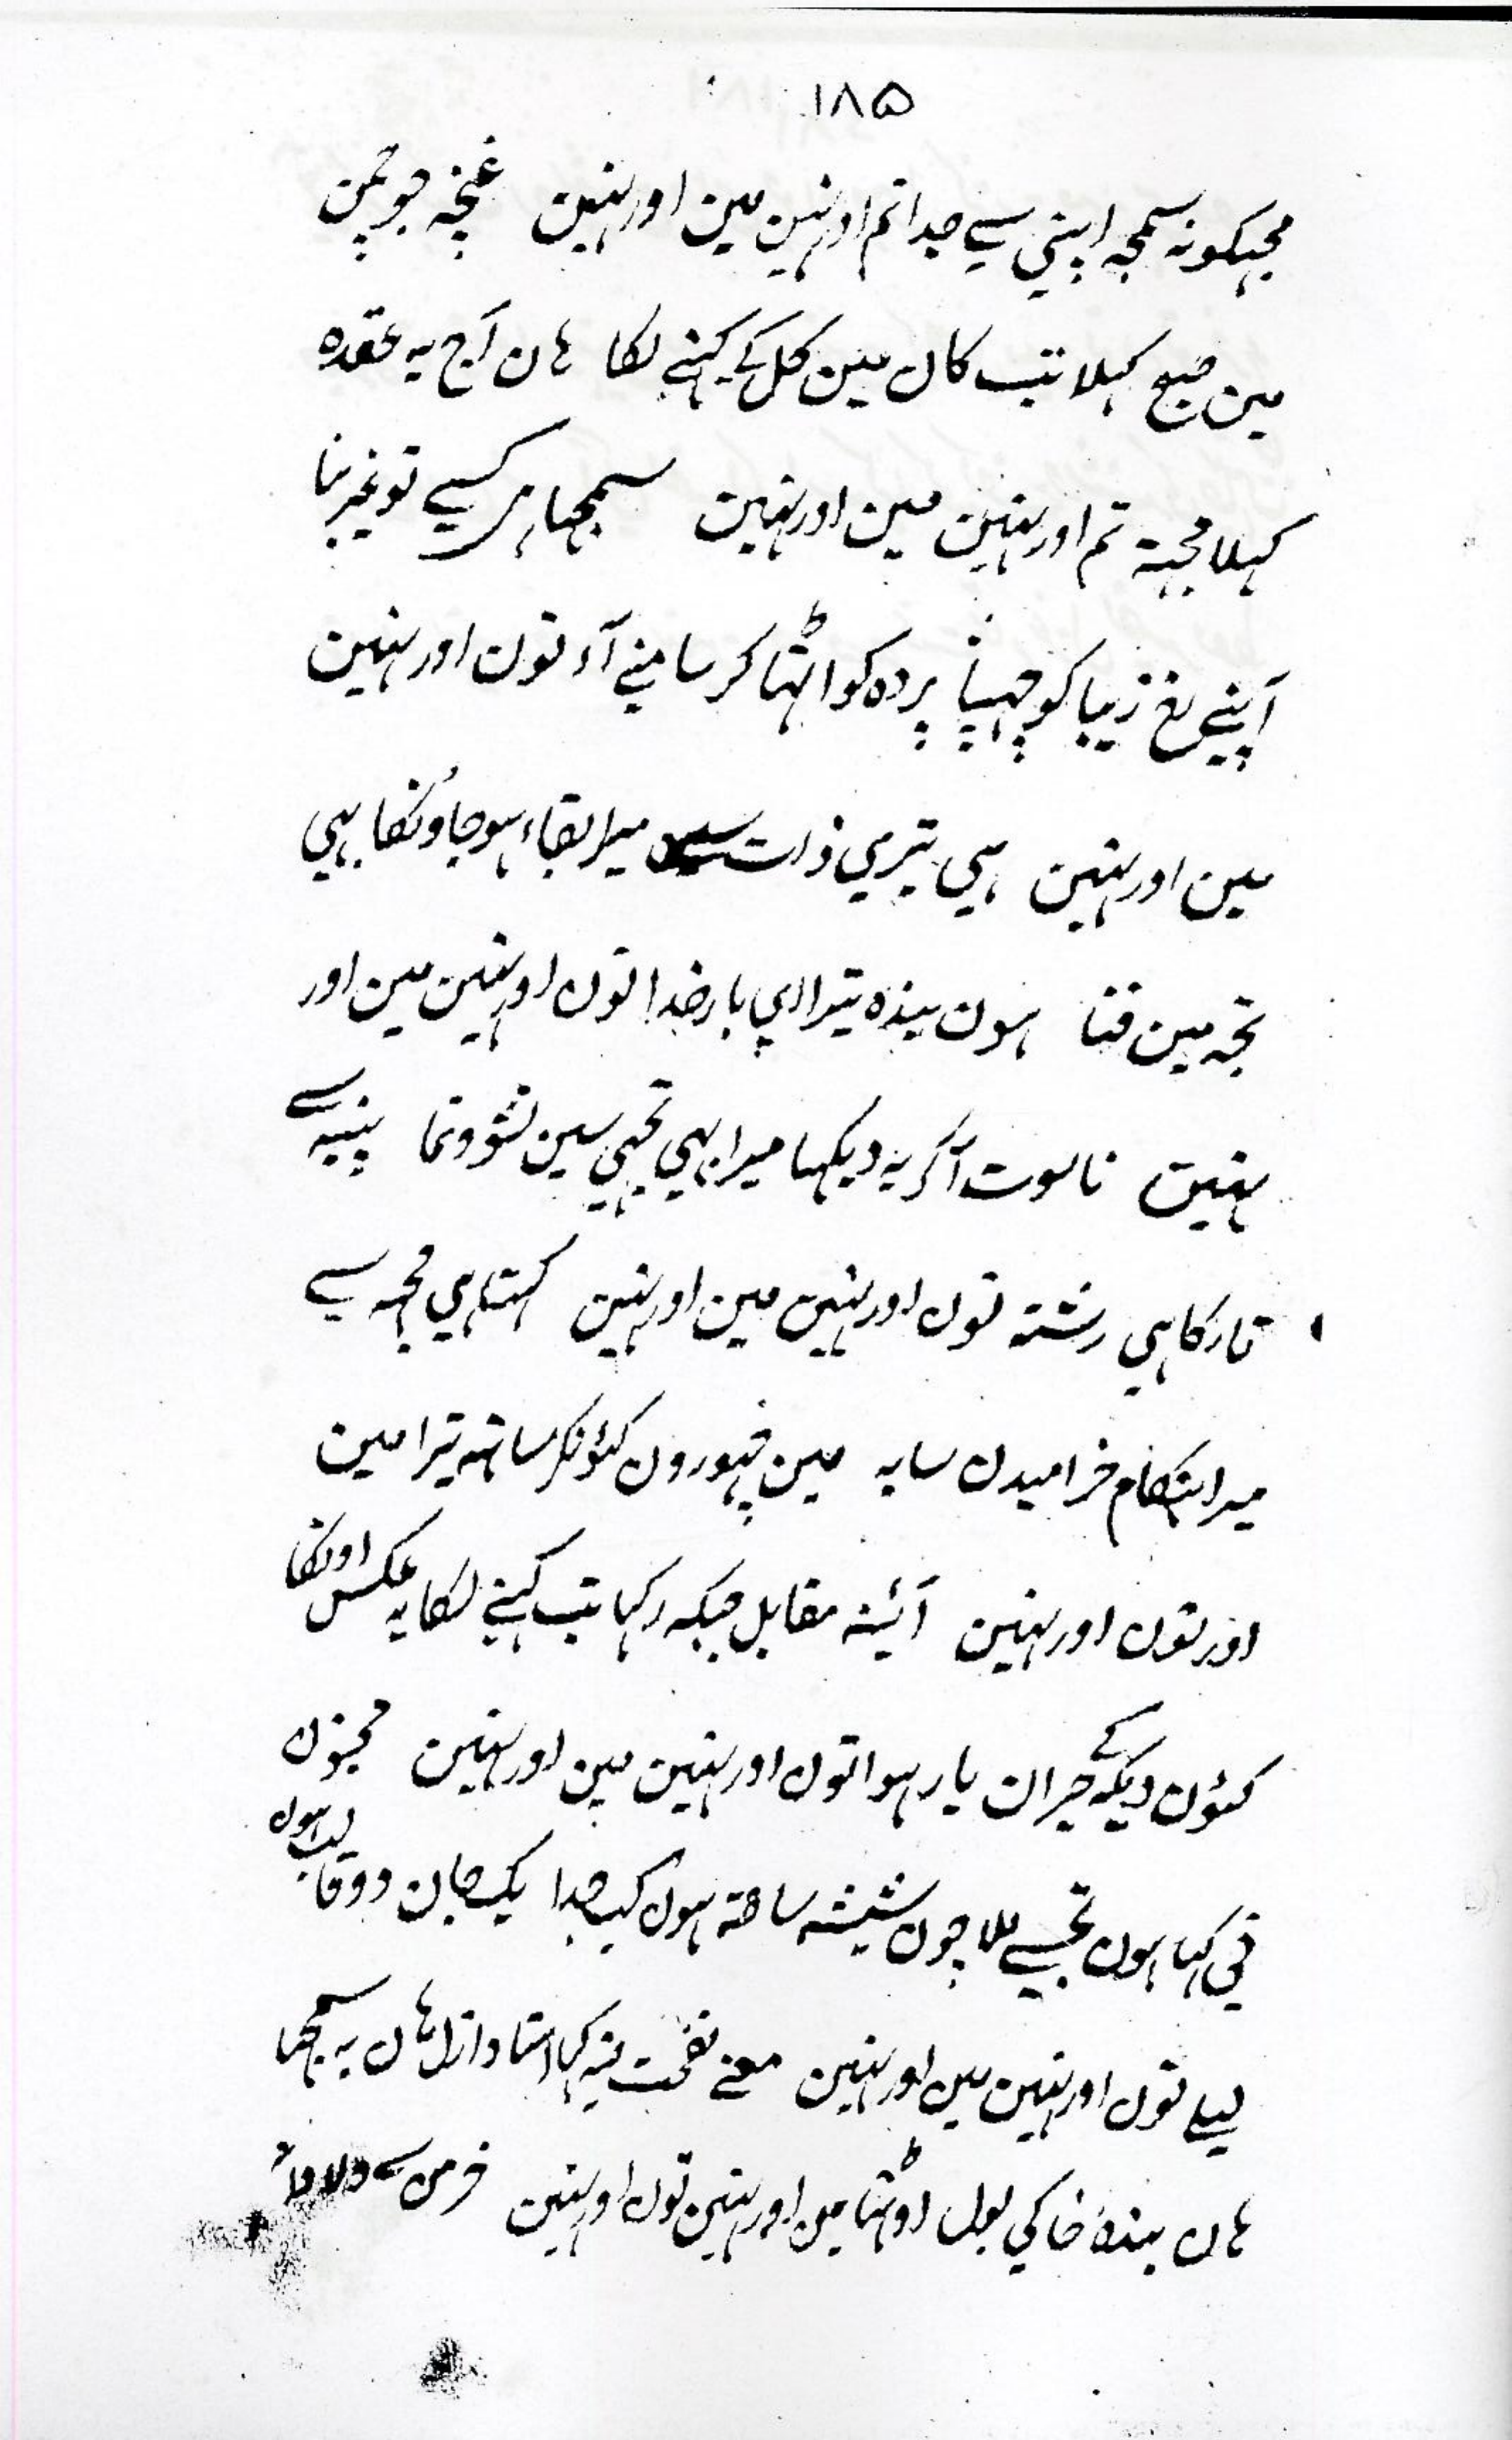 ۱۸۵
مجہکو نہ سمجہ اپنی سے جدا تم اور نہین مین اور نہین غنچہ جو چمن
مین صبح کہلا تب کان مین گل کے کہنے لگا ہان آج یہ عقدہ
کہلا مجہہ تم اور نہین مین اور نہین سمجہا ہر کسے تو غیر بنا
اپنے رخ زیبا کو چہپا پردہ کو اٹہا کر سامنے آ توں اور نہین
مین اور نہین ہی تیری ذات میرا بقاء ہو جاؤنگا بہی
تجہ مین فنا ہون بندہ تیرا ای بار خدا توں اور نہین مین اور
نہین ناسوت آکر یہ دیکہا میرا بہی تجہی سین نشو ونما پنبہ سے
تار کا ہی رشتہ توں اور نہین مین اور نہین کہتا ہی مجہہ سے
میرا ہنگام خرامیدن سایہ مین چہورون کئونکر ساتہہ تیرا مین
اور توں اور نہین آئینہ مقابل جبکہ رکہا تب کہنے لگا یہ عکس اونکا
کئون دیکہ کے حیران یار ہوا توں اور نہین مین اور نہین مجنون
نی کہا ہون تجسے ملا چون شیشہ ساعۃ ہون کب جدا یک جان دو قالب ہون
لیلے توں اور نہین مین اور نہین معنے نفخت فیہ کیا استاد ازل ہان یہ سمجہا
ہان بندۂ خاکی بول اوٹہا مین اور نہین توں اور نہین خرمن سے